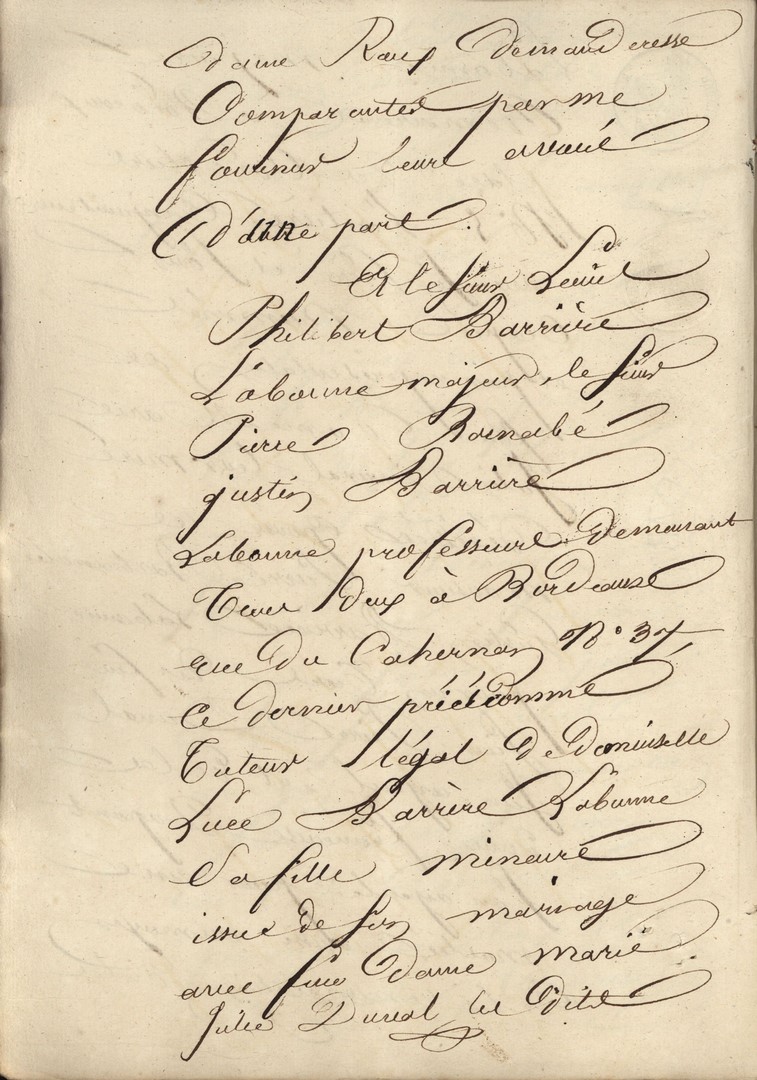 dame Roux demanderesse
Comparantes par me
fournier leur avoué
D'une part.
Et le sieur Louis
Philibert Barrière
Labaume majeur, le sieur
Pierre Barnabé
justin Barrière
Labaume professeur demeurant
Tous deux à Bordeaux
rue du Cahernan N° 37,
Ce dernier prédénommé
Tuteur légal de Demoiselle
Luce Barrère Labaume
Sa fille mineure
issue de son mariage
avec feue Dame Marie
Julie Duval les Dits